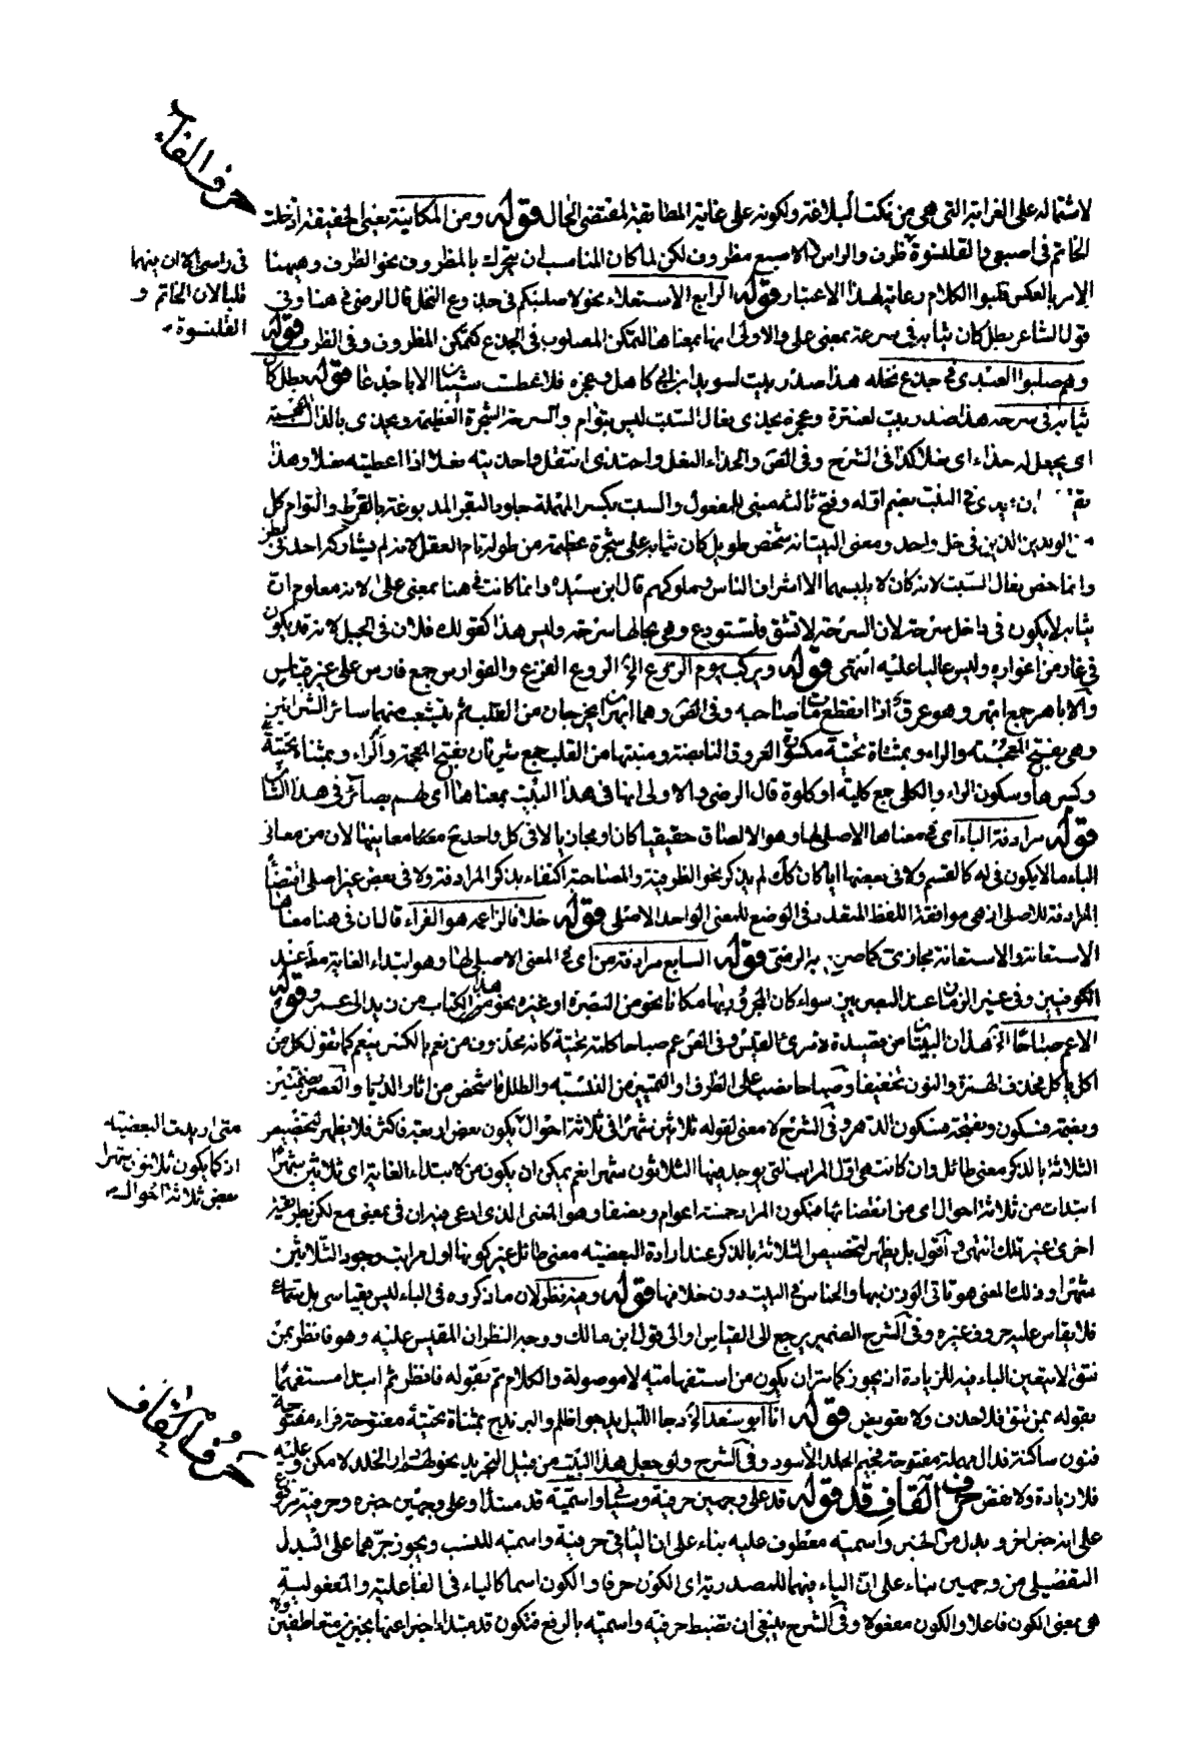 حرف الفاء
لاشتماله على الغرابة التي هي من نكت البلاغة ولكونه على غاية المطابقة لمقتضى الحال قوله ومن المكانية بعينها الحقيقة ادخلت
الخاتم في اصبعي والقلنسوة ظرف والراس والاصبع مظروف لكن لما كان المناسب ان يتحرك بالمظروف نحو الظرف وههنا
في راسي الا ان فيهما
قلبا لان الخاتم و
القلنسوة
الامر بالعكس قلبوا الكلام رعاية لهذا الاعتبار قوله الرابع الاستعلاء نحو لاصلبنكم في جذوع النخل قال الرضي في هنا وفي
قول الشاعر بطل كان ثيابه في سرحة بمعنى على والاولى انها بمعناها لتمكن المصلوب في الجذع كتمكن المظروف في الظرف قوله
وهم صلبوا العبدي في جذع نخلة هذا صدر بيت لسويد ابن ابي كاهل وعجزه فلا عطست شيبان الا باجدعا قوله بطل كان
ثيابه في سرحة هذا صدر بيت لعنترة وعجزه يحذى نعال السبت ليس بتوام والسرحة الشجرة العظيمة ويحذى بالذال المعجمة
اي يجعل له حذاء اي نعلا كذا في الشرح وفي الص والحذاء النعل واحتذى انتعل واحذيته نعلا اذا اعطيته نعلا وهذا
يحذى في البيت بضم اوله وفتح ثالثه مبني للمفعول والسبت بكسر المهملة جلود البقر المدبوغة بالقرظ والتوام كل
الولدين الذين في حمل واحد ومعنى البيت انه شخص طويل كان ثيابه على شجرة عظيمة من طوله تام العقل لانه لم يشاركه احد في بطن
وانما خص نعال السبت لانه كان لا يلبسها الا اشراف الناس وملوكهم قال ابن سيده وانما كانت في هنا بمعنى على لانه معلوم ان
ثيابه لا يكون في داخل سرحة لان السرحة لا تشق فتستودع وهي بحالها سرحة وليس هذا كقولك فلان في الجبل لانه قد يكون
في غار من اغواره وليس عاليا عليه انتهى قوله ويركب يوم الروع الخ الروع الفزع والفوارس جمع فارس على غير قياس
والاباهر جمع ابهر وهو عرق اذا انقطع مات صاحبه وفي الص وهما ابهران يخرجان من القلب ثم يتشعب منهما سائر الشرايين
وهي بفتح المعجمة والراء وبمثناة تحتية مكسورة العروق النابضة ومنبتها من القلب جمع شريان بفتح المعجمة والراء وبمثناة تحتية
وكسرها وسكون الراء والكلى جمع كلية او كلوة قال الرضي والاولى انها في هذا البيت بمعناها اي لهم بصائر في هذا الشان
قوله مرادفة الباء اي في معناها الاصلي لها وهو الالصاق حقيقيا كان او مجازيا لا في كل واحد من معانيها لان من معاني
الباء ما لا يكون في له كالقسم ولا في بعضها ايا كان لم يذكر نحو الظرفية والمصاحبة اكتفاء بذكر المرادفة ولا في بعض غير اصلي اقتضاء
المرادفة للاصلي اذ هي موافقة اللفظ المتعدد في الوضع للمعنى الواحد الاصلي قوله خلافا لزاعمه هو الفراء قال ان في هنا معناها
الاستعانة والاستعانة مجازي كما صرح به الرضي قوله السابع مرادفة من اي في المعنى الاصلي لها وهو ابتداء الغاية مط عند
الكوفيين وفي غير الزمان عند البصريين سواء كان المجرور بها مكانا نحو من البصرة او غيره نحو هذا الكتاب من زيد الى عمرو قوله
الا عم صباحا الخ هذان البيتان من قصيدة لامرئ القيس وفي الص عم صباحا كلمة تحية كانه محذوف من نعم بالكسر ينعم كما تقول كل من
اكل ياكل فحذف الهمزة والنون تخفيفا وصباحا نصب على الظرف او التمييز من النسبة والطلل ما شخص من اثار الديار والعصر بضمتين
وبضمة فسكون وبفتحة فسكون الدهر وفي الشرح لا معنى لقوله ثلاثين شهرا في ثلاثة احوال لكون بعض اربعة فاكثر فلا يظهر لتخصيص
متى اريدت البعضية
اذ كما يكون ثلاثون شهرا
بعض ثلاثة احوال
الثلاثة بالذكر معنى طائل وان كانت هي اول المراتب التي يوجد فيها الثلاثون شهرا نعم يمكن ان يكون من لابتداء الغاية اي ثلاثين شهرا
ابتدات من ثلاثة احوال اي من انقضائها فيكون المراد خمسة اعوام ونصفا وهو المعنى الذي ادعي فيه ان في بمعنى مع لكن بطريق
اخرى غير تلك انتهى واقول بل يظهر لتخصيص الثلاثة بالذكر عند ارادة البعضية معنى طائل غير كونها اول مراتب وجود الثلاثين
شهرا وذلك المعنى هو تاتي الوزن بها والجناس في البيت دون خلافها قوله وفيه نظر لان ما ذكروه في الباء ليس بقياسي بل بسماع
فلا يقاس عليه حروف غيره وفي الشرح الضمير يرجع الى القياس او الى قول ابن مالك ووجه النظر ان المقيس عليه وهو فانظر بمن
تثق لا يتعين الباء فيه للزيادة اذ يجوز كما مر ان يكون من استفهامية لا موصولة والكلام تم بقوله فانظر ثم ابتدا مستفهما
بقوله بمن تثق فلا حذف ولا تعويض قوله انا ابو سعد اذا الليل دجا الخ دجا الليل يدجو اظلم واليرندج بمثناة تحتية مفتوحة فراء مفتوحة
فنون ساكنة فدال مهملة مفتوحة فجيم الجلد الاسود وفي الشرح ولو جعل هذا البيت من قبيل التجريد نحو لهم فيها دار الخلد لامكن وعليه
فلا زيادة ولا نقض حرف القاف قد قوله قد على وجهين حرفية وستاتي واسمية قد مبتدا وعلى وجهين خبره وحرفية مرفوع
حرف القاف
على انه خبر اخر او بدل من الخبر واسمية معطوف عليه بناء على ان اليا في حرفية واسمية للنسب ويجوز جرهما على البدل
التفصيلي من وجهين بناء على ان الياء فيهما للمصدرية اي الكون حرفا والكون اسما كالياء في الفاعلية والمفعولية
هي بمعنى الكون فاعلا والكون مفعولا وفي الشرح ينبغي ان تضبط حرفية واسمية بالرفع فتكون قد مبتداء اخبر عنها بخبرين متعاطفين